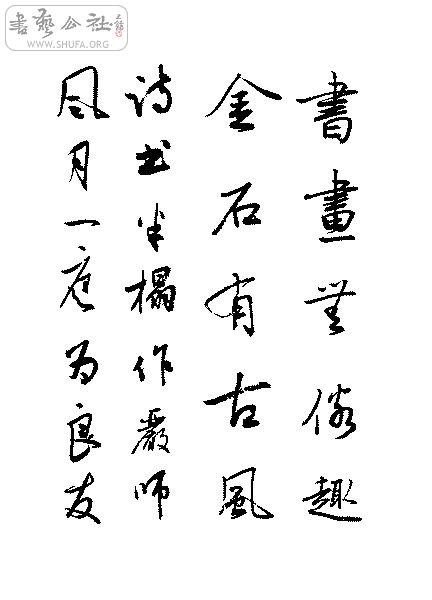 書藝公社
WWW.SHUFA.ORG
書畫無俗趣
金石有古風
诗书半榻作嚴师
风月一庭为良友